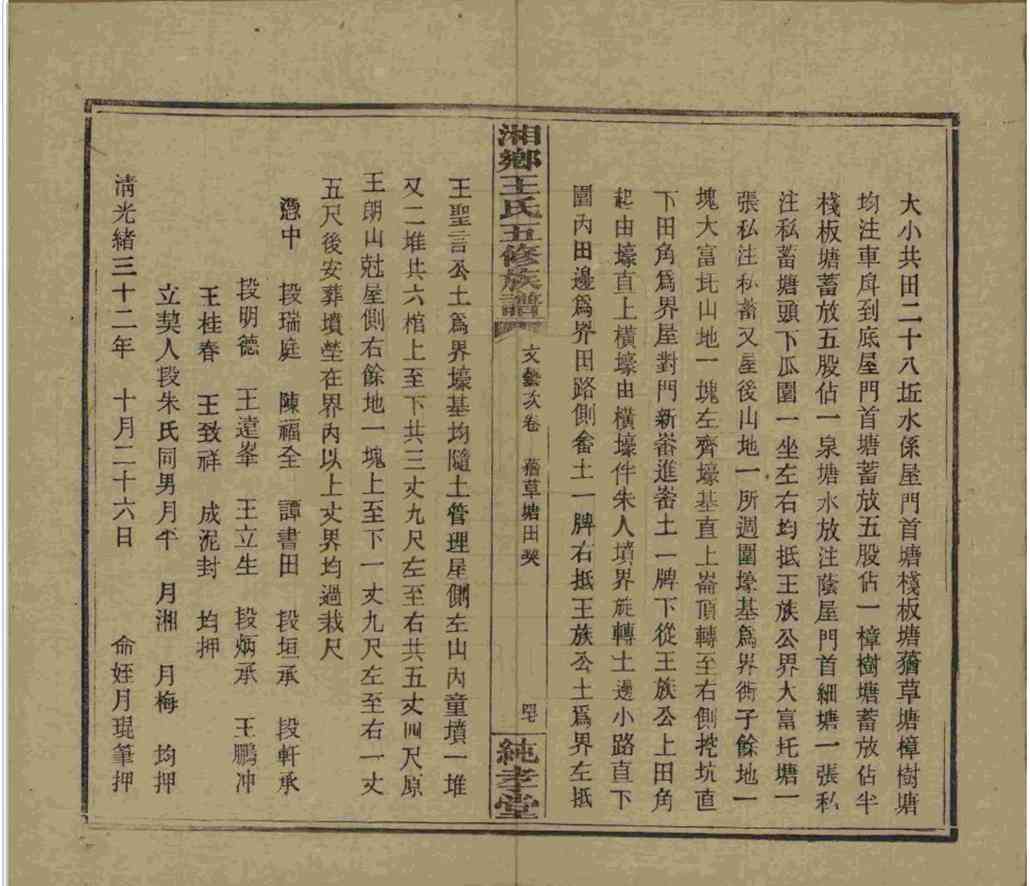 大小共田二十八坵水係屋門首塘棧板塘蓄草塘樟樹塘
均注車戽到底屋門首塘蓄放五股佔一樟樹塘蓄放佔半
棧板塘蓄放五股佔一泉塘水放注蔭屋門首細塘一張私
注私蓄塘頭下瓜園一坐左右均抵王族公界大富圫塘一
張私注私蓄又屋後山地一所週圍壕基為界衕子餘地一
塊大富圫山地一塊左齊壕基直上崙頂轉至右側挖坑直
下田角為界屋對門新畬進畬土一脾下從王族公上田角
起由壕直上橫壕由橫壕伴朱人墳界旋轉土邊小路直下
圍內田邊為界田路側畬土一脾右抵王族公土為界左抵
湘鄉王氏五修族譜
文藝次卷
蓄草塘田契
純孝堂
王聖言公土為界壕基均隨土管理屋側左山內童墳一堆
又二堆共六棺上至下共三丈九尺左至右共五丈四尺原
王朗山尅屋側右餘地一塊上至下一丈九尺左至右一丈
五尺後安葬墳塋在界內以上丈界均過裁尺
憑中 段瑞庭 陳福全 譚書田 段垣承 段軒承
段明德 王遠峯 王立生 段炳承 王鵬冲
王桂春 王致祥 成泥封 均押
立契人段朱氏同男月平 月湘 月梅 均押
清光緒三十二年 十月二十六日 命姪月琨筆押